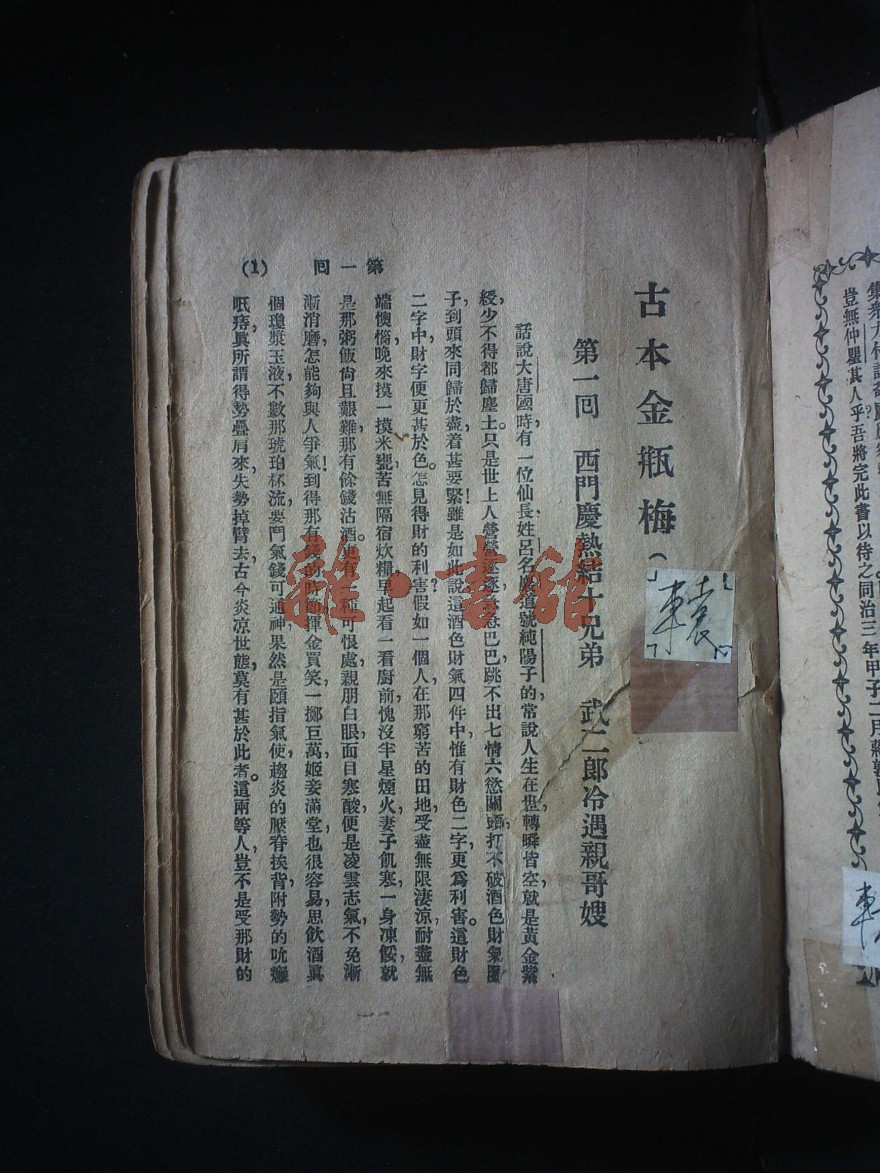 集
豈無仲瞿其人乎?吾將完此書以待之同治三年甲子二月蔣
古本金瓶梅(
轅
第一回 西門慶熱結十兄弟 武二郎冷遇親哥嫂
話說大唐國時,有一位仙長,姓呂名嵒,道號純陽子的,常說人生在世,轉瞬皆空,就是黃金紫
綬,少不得都歸塵土。只是世上人營營逐逐,巴巴跳不出七情六慾關頭,打不破酒色財氣圈
子,到頭來同歸於盡,着甚要緊!雖是如此說,這酒色財氣四件中,惟有財色二字,更爲利害。這財色
二字中,財字便更甚於色。怎見得財的利害?假如一個人在那窮苦的田地,受盡無限淒涼,耐盡無
端懊惱,晚來摸一摸米甕,苦無隔宿炊糧,早起看一看廚前,愧沒半星煙火,妻子飢寒,一身凍餒,就
是那粥飯尙且艱難,那有餘錢沽酒。更有一種可恨處,親朋白眼,面目寒酸,便是凌雲志氣,不免漸
漸消磨,怎能夠與人爭氣!到得那有錢的時節,揮金買笑,一擲巨萬,姬妾滿堂也很容易,思飲酒眞
個瓊漿玉液,不數那琥珀杯流,要鬥氣錢可通神,果然是頤指氣使,趨炎的壓脊挨背,附勢的吮癰
呧痔,眞所謂得勢疊肩來,失勢掉臂去,古今炎凉世態,莫有甚於此者。這兩等人,豈不是受那財的
第一回 (1)
雜·書館